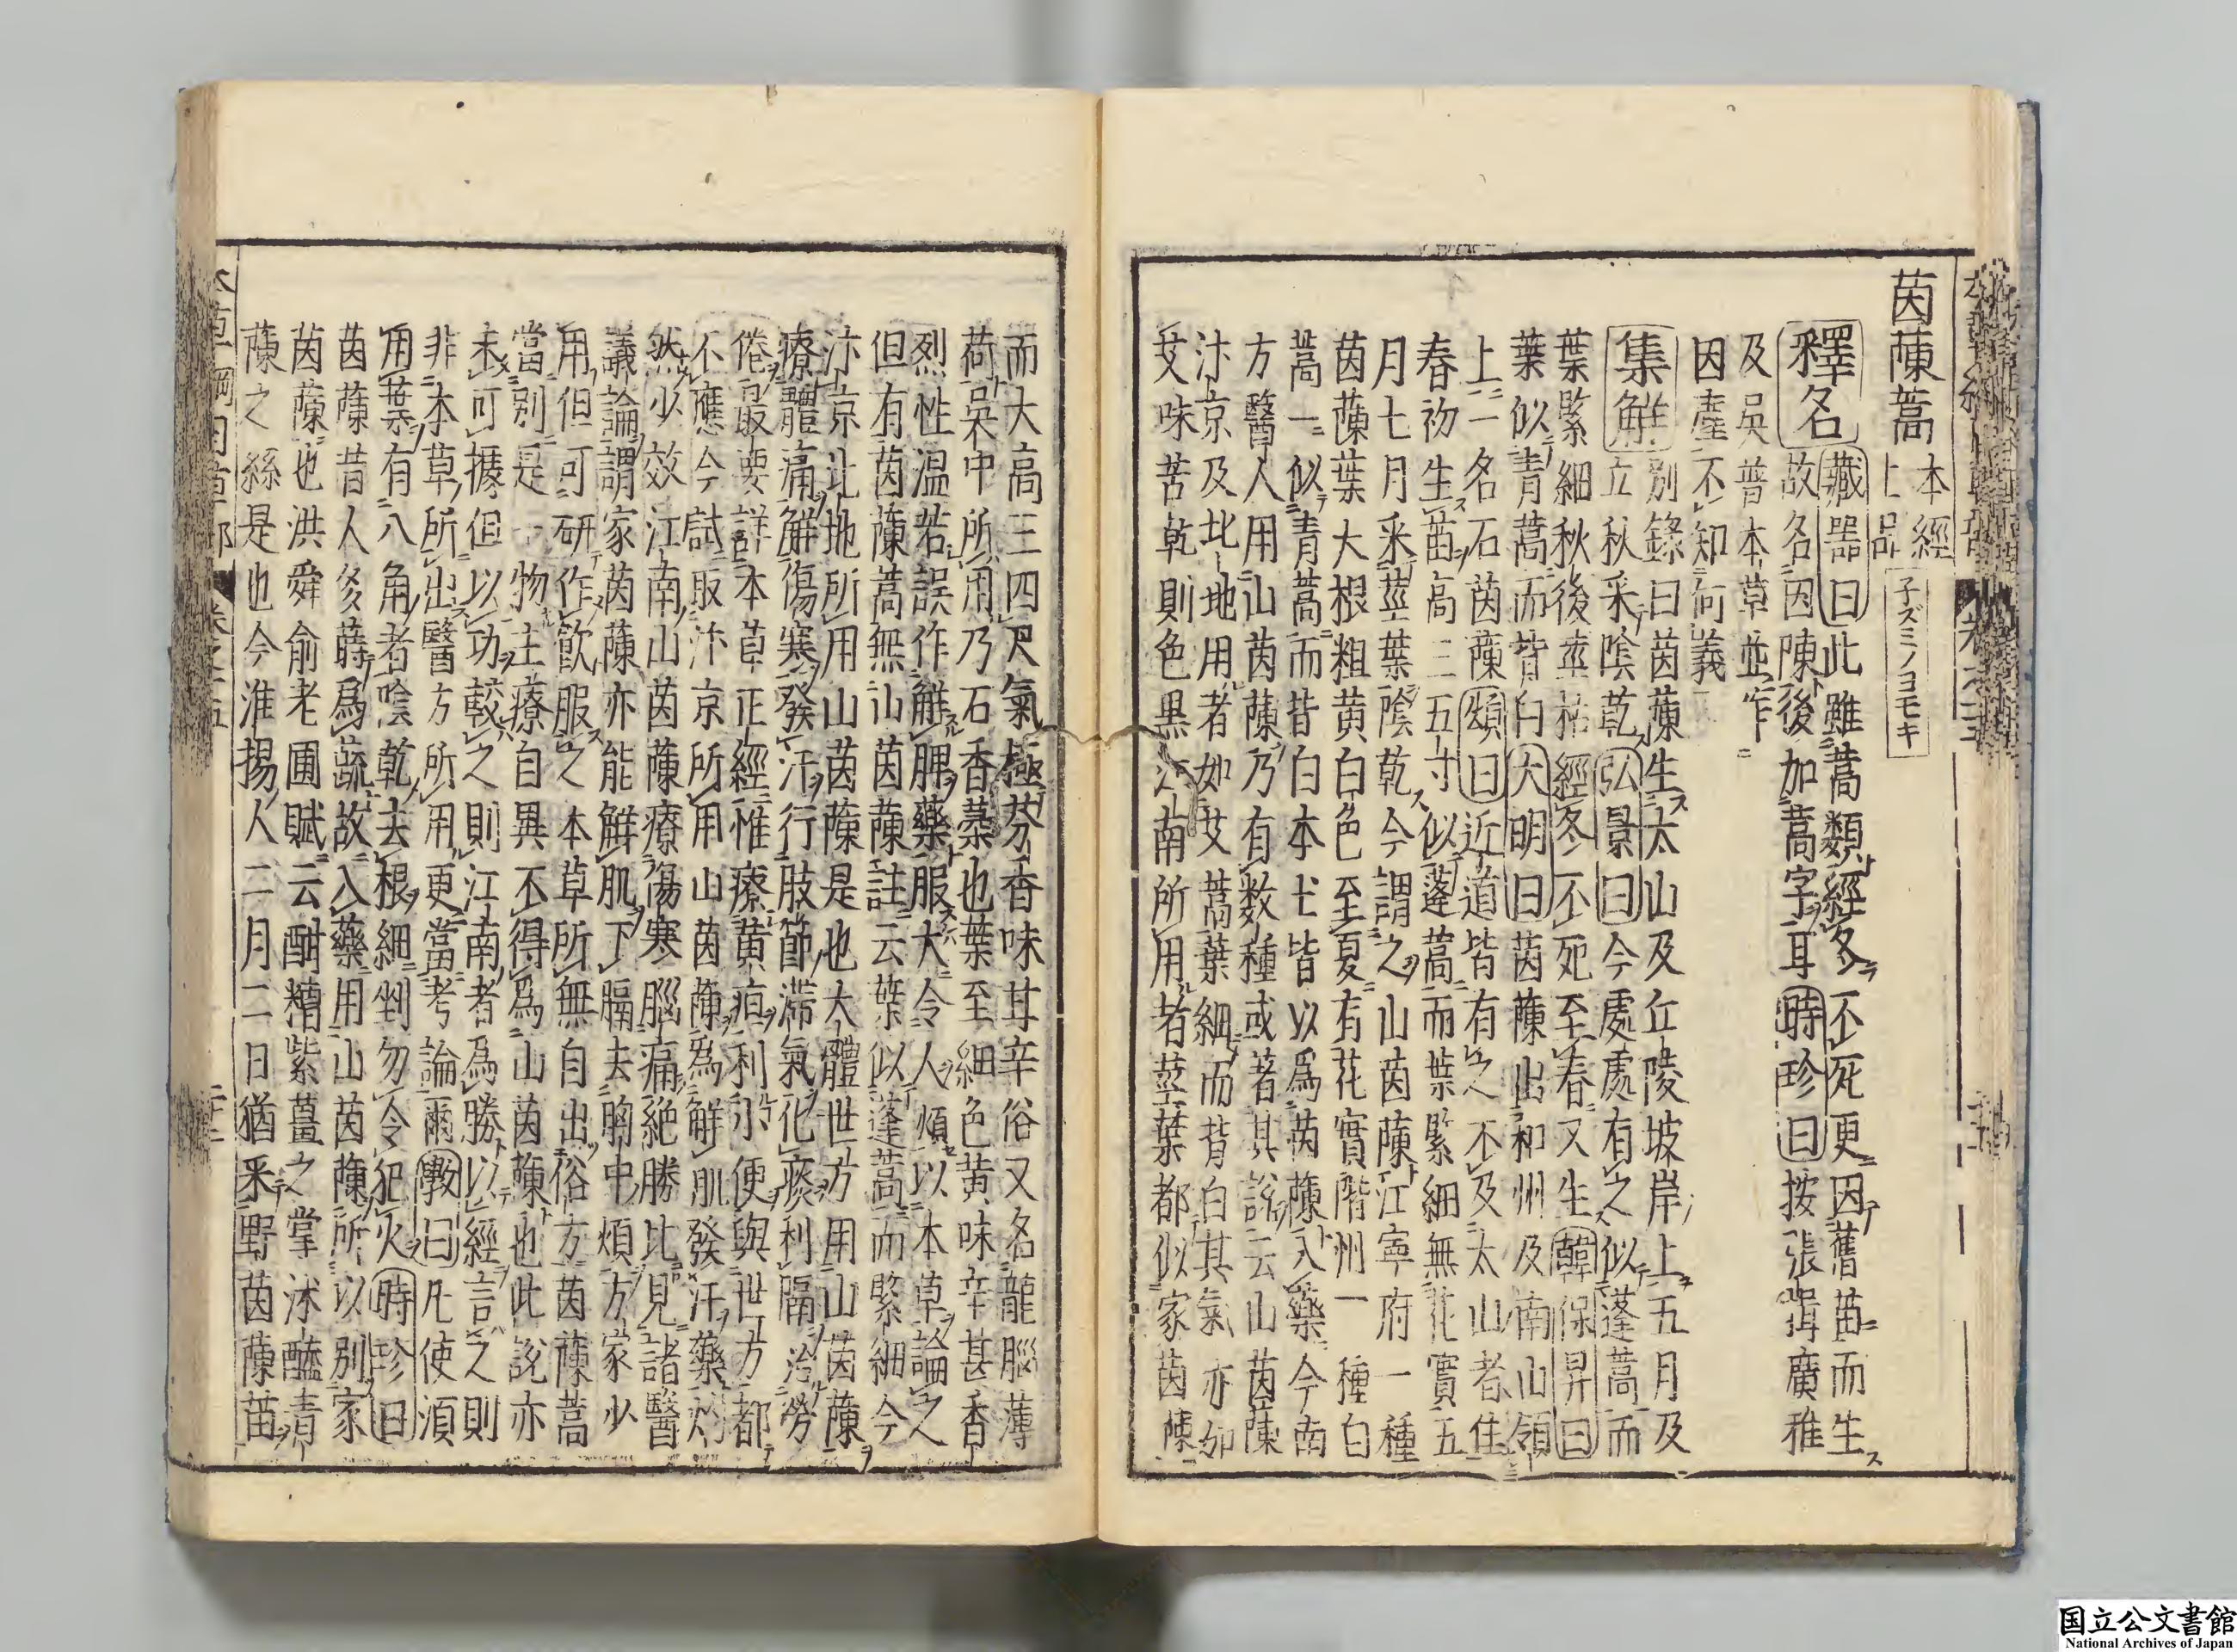 茵蔯蒿 本經上品 子ズミノヨモキ
釋名 藏器曰此雖蒿類經冬不死更因舊苗而生
故名因陳後加蒿字耳時珍曰按張揖廣雅
及吳普本草並作
因塵不知何義
集解 別錄曰茵蔯生太山及丘陵坡岸上五月及
立秋采陰乾弘景曰今處處有之似蓬蒿而
葉緊細秋後莖枯經冬不死至春又生韓保昇曰
葉似青蒿而背白大明曰茵蔯出和州及南山嶺
上一名石茵蔯頌曰近道皆有之不及太山者佳
春初生苗高三五寸似蓬蒿而葉緊細無花實五
月七月采莖葉陰乾今謂之山茵蔯江寧府一種
茵蔯葉大根粗黃白色至夏有花實階州一種白
蒿一似青蒿而背白本土皆以爲茵蔯入藥今南
方醫人用山茵蔯乃有数種或著其說云山茵蔯
汴京及北地用者如艾蒿葉細而背白其氣亦如
艾味苦乾則色黑江南所用者莖葉都似家茵蔯
而大高三四尺氣極芬香味甘辛俗又名龍腦薄
荷吳中所用乃石香葇也葉至細色黃味辛甚香
烈性温若誤作解脾藥服大令人煩以本草論之
但有茵蔯蒿無山茵蔯註云葉似蓬蒿而緊細今
汴京北地所用山茵蔯是也大體世方用山茵蔯
療體痛解傷寒發汗行肢節滯氣化痰利膈治勞
倦最要詳本草正經惟療黃疸利小便與世方都
不應今試取汴京所用山茵蔯爲解肌發汗藥灼
然少效江南山茵蔯療傷寒腦痛絕勝比見諸醫
議論謂家茵蔯亦能解肌下膈去胸中煩方家少
用但可研作飲服之本草所無自出俗方茵蔯蒿
當別是一物主療自異不得爲山茵蔯也此說亦
未可據但以功較之則江南者爲勝以經言之則
非本草所出醫方所用更當考論爾斅曰凡使須
用葉有八角者陰乾去根細剉勿令犯火時珍曰
茵蔯昔人多蒔爲蔬故入藥用山茵蔯所以別家
茵蔯也洪舜俞老圃賦云酣糟紫薑之掌沐醯青
蔯之絲是也今淮揚人二月二日猶采野茵蔯苗
国立公文書館
National Archives of Japan